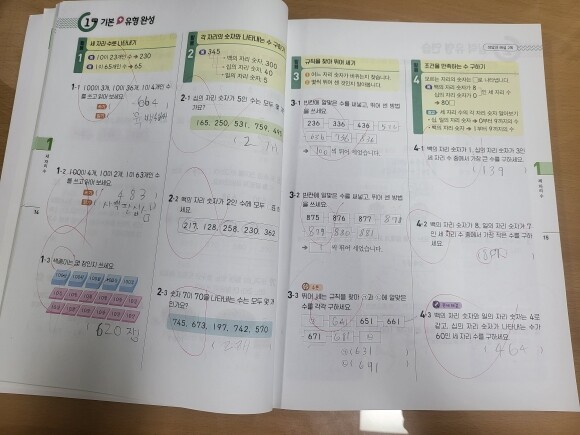 1장 기본 유형 완성
유형 1
세 자리 수로 나타내기
10이 23개인 수 → 230
1이 65개인 수 → 65
1-1 100이 3개, 10이 36개, 1이 4개인 수를 쓰고 읽어 보세요.
664
1-2 100이 4개, 10이 2개, 1이 63개인 수를 쓰고 읽어 보세요.
483
1-3 색종이는 몇 장인지 쓰세요.
620 장
1
세 자리 수
14
유형 2
각 자리의 숫자와 나타내는 수 구하기
345
백의 자리 숫자, 300
십의 자리 숫자, 40
일의 자리 숫자, 5
2-1 십의 자리 숫자가 5인 수는 모두 몇
가요?
165, 250, 531, 759, 495
2-2 백의 자리 숫자가 2인 수에 모두
세요.
217, 128, 258, 230, 362
2-3 숫자 7이 70을 나타내는 수는 모두 몇
인가요?
745, 673, 197, 742, 570
유형 3
규칙을 찾아 뛰어 세기
어느 자리 숫자가 바뀌는지 찾습니다.
몇씩 뛰어 센 것인지 알아봅니다.
3-1 빈칸에 알맞은 수를 써넣고, 뛰어 센 방법을 쓰세요.
236 336 436 536
636 736 836
→ 100 씩 뛰어 세었습니다.
3-2 빈칸에 알맞은 수를 써넣고, 뛰어 센 방법을 쓰세요.
875 876 877 878
879 880 881
→ 1 씩 뛰어 세었습니다.
3-3 뛰어 세는 규칙을 찾아
에 알맞은
수를 각각 구하세요.
641 651 661
671 681
631
691
유형 4
조건을 만족하는 수 구하기
모르는 자리의 숫자는 □로 나타냅니다.
백의 자리 숫자가 8,
십의 자리 숫자가 0
인 세 자리 수
→ 80□
세 자리 수의 각 자리 숫자 알아보기
십, 일의 자리 숫자 → 0부터 9까지의 수
백의 자리 숫자 → 1부터 9까지의 수
4-1 백의 자리 숫자가 1, 십의 자리 숫자가 3인
세 자리 수 중에서 가장 큰 수를 구하세요.
139
4-2 백의 자리 숫자가 8, 일의 자리 숫자가 7
인 세 자리 수 중에서 가장 작은 수를 구하세요.
807
4-3 백의 자리 숫자와 일의 자리 숫자는 4로
같고, 십의 자리 숫자가 나타내는 수가
60인 세 자리 수를 구하세요.
464
1
세 자리 수
15